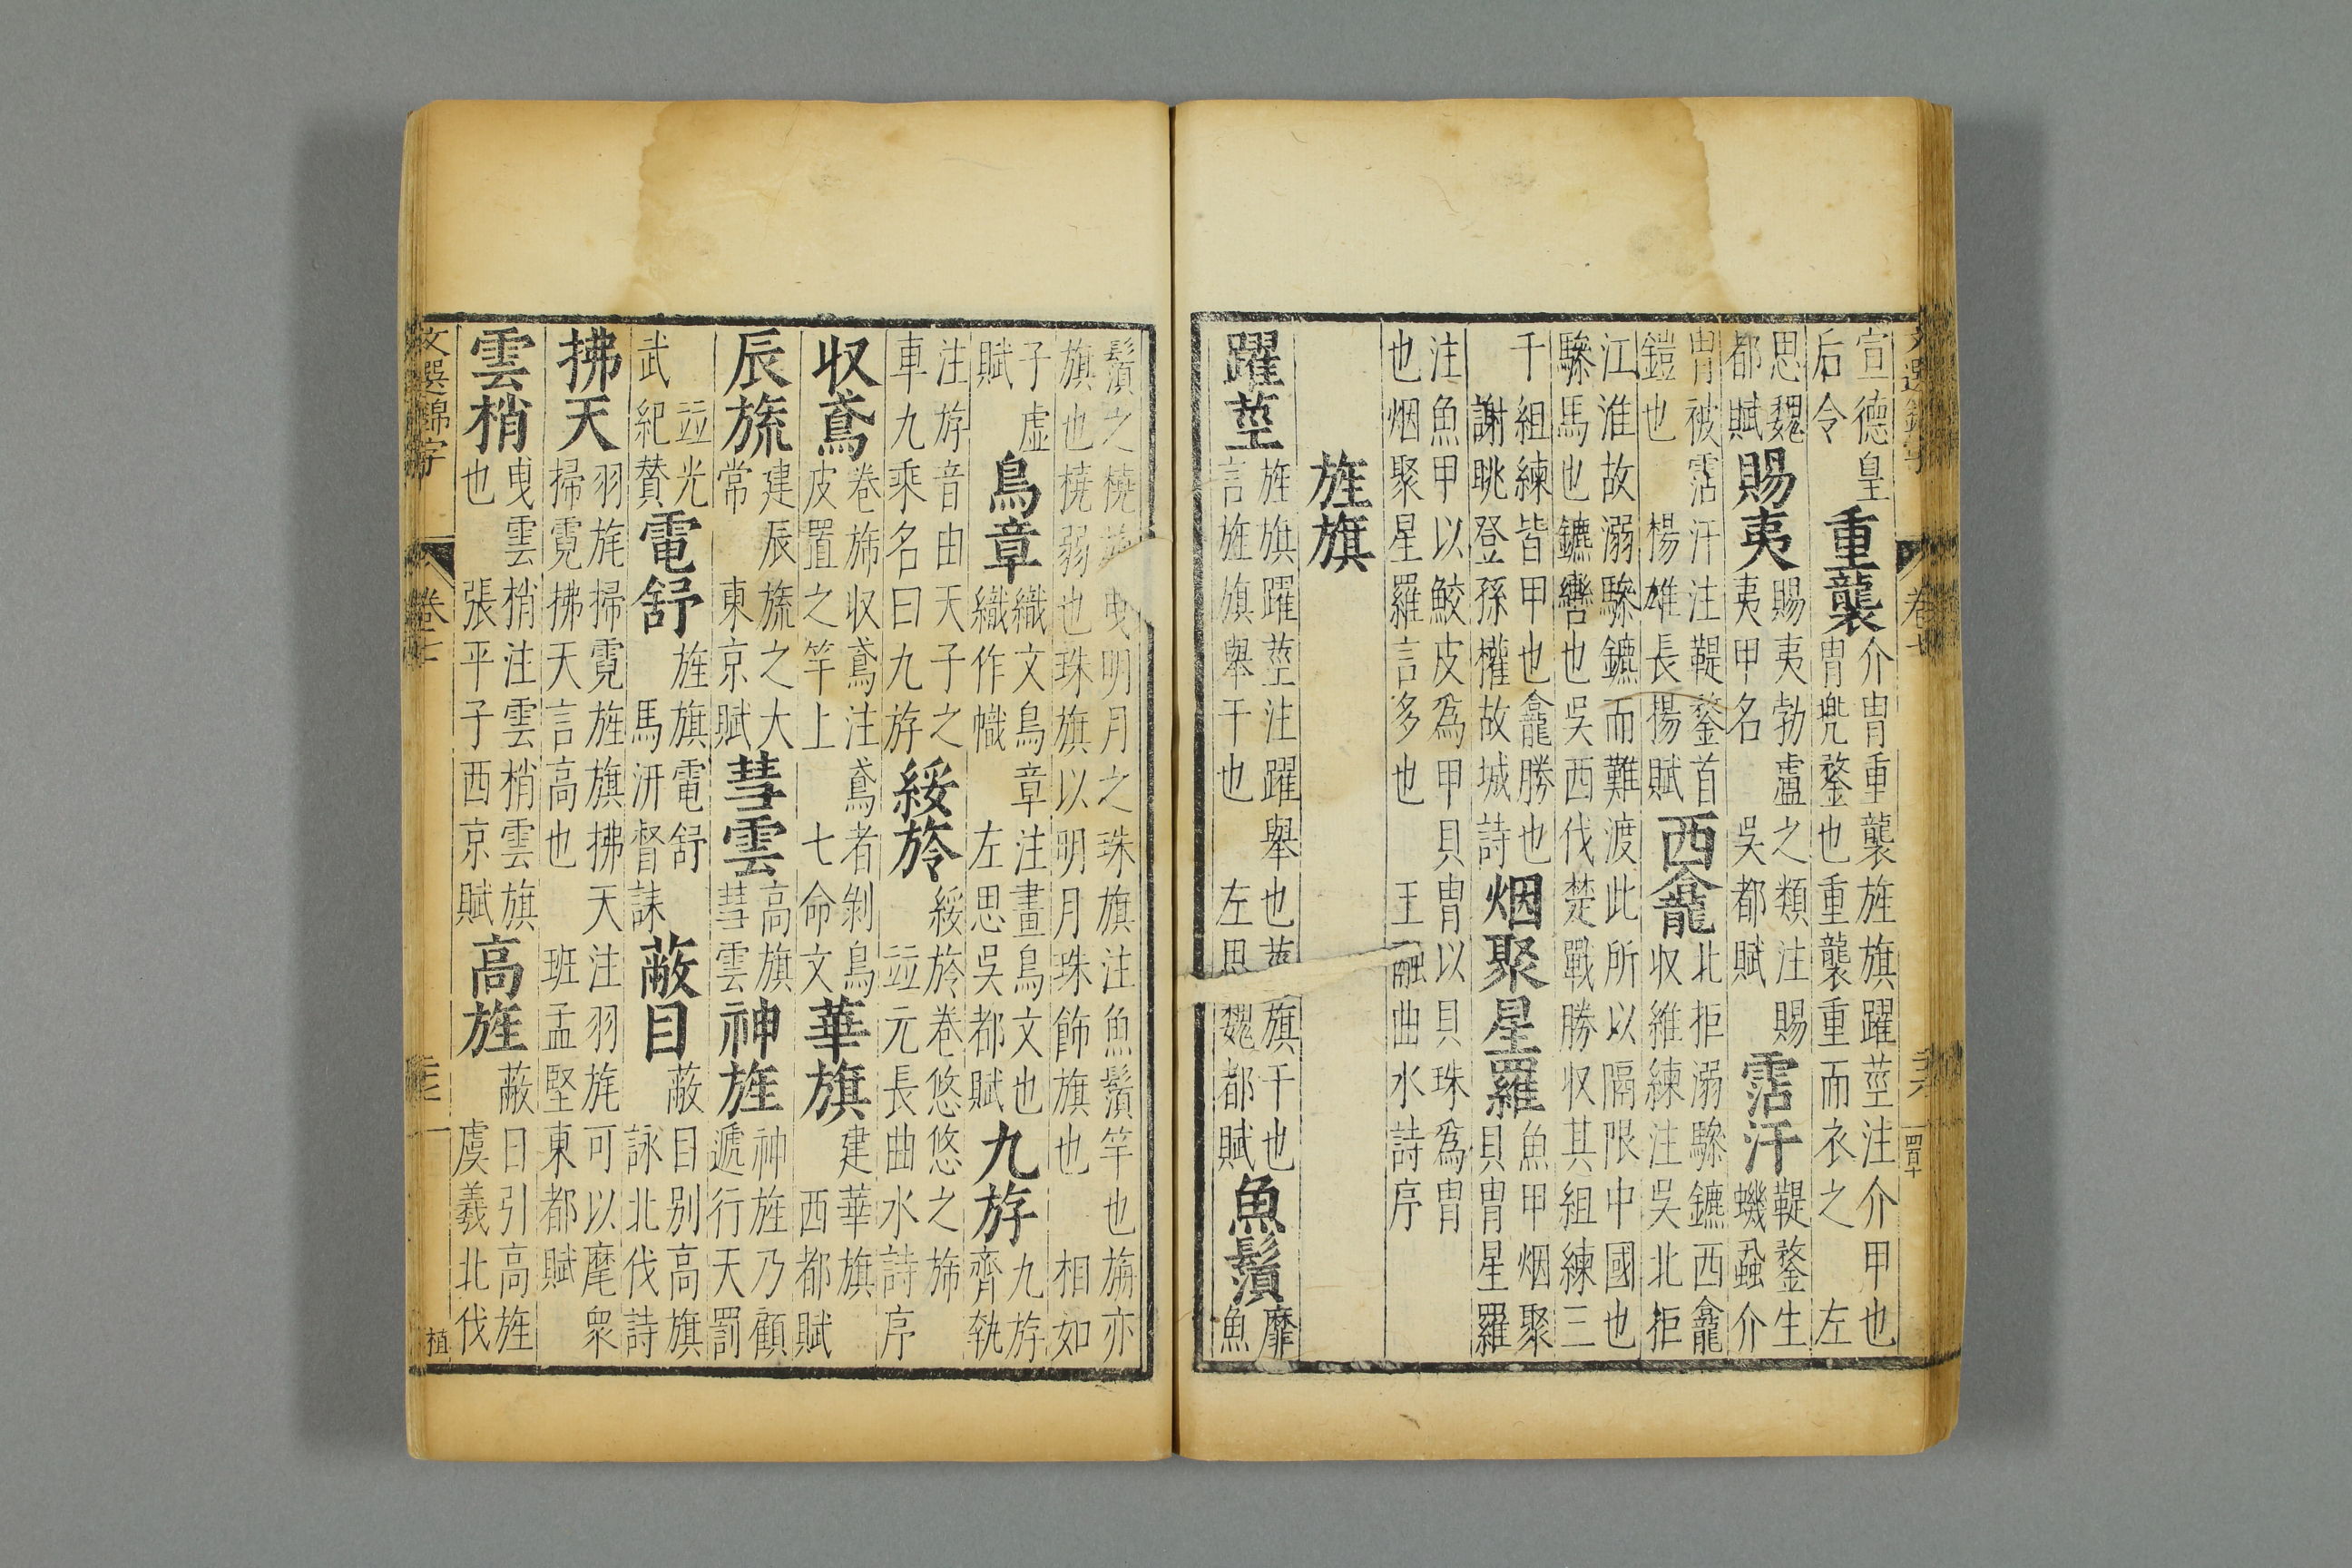 文選錦字 卷七 三六 四百十
宣德皇
后令
重襲
介冑重襲旌旗躍莖注介甲也
冑兜鍪也重襲重而衣之 左
思魏
都賦
賜夷
賜夷勃盧之類注賜
夷甲名 吳都賦
霑汗
鞮鍪生
蟣蝨介
冑被霑汗注鞮鍪首
鎧也 楊雄長楊賦
西龕
北拒溺驂鑣西龕
収維練注吳北拒
江淮故溺驂鑣而難渡此所以隔限中國也
驂馬也鑣轡也吳西伐楚戰勝収其組練三
千組練皆甲也龕勝也
謝眺登孫權故城詩
烟聚星羅
魚甲烟聚
貝冑星羅
注魚甲以鮫皮為甲貝冑以貝珠為冑
也烟聚星羅言多也 王融曲水詩序
旌旗
躍莖
旌旗躍莖注躍舉也莖旗干也
言旌旗舉干也 左思魏都賦
魚鬚
靡
魚
鬚之橈 曳明月之珠旗注魚鬚竿也旃亦
旗也橈弱也珠旗以明月珠飾旗也 相如
子虛
賦
鳥章
織文鳥章注畫鳥文也
織作幟 左思吳都賦
九斿
九斿
齊執
注斿音由天子之
車九乘名曰九斿
綏旍
綏旍卷悠悠之斾
並元長曲水詩序
収鳶
卷斾収鳶注鳶者剝鳥
皮置之竿上 七命文
華旗
建華旗
西都賦
辰旒
建辰旒之大
常 東京賦
彗雲
高旗
彗雲
神旌
神旌乃顧
遞行天罰
並光
武紀贊
電舒
旌旗電舒
馬汧督誄
蔽目
蔽目別高旗
詠北伐詩
拂天
羽旄掃霓旌旗拂天注羽旄可以麾衆
掃霓拂天言高也 班孟堅東都賦
雲梢
曳雲梢注雲梢雲旗
也 張平子西京賦
高旌
蔽日引高旌
虞羲北伐
文選錦字 卷七 三七 植